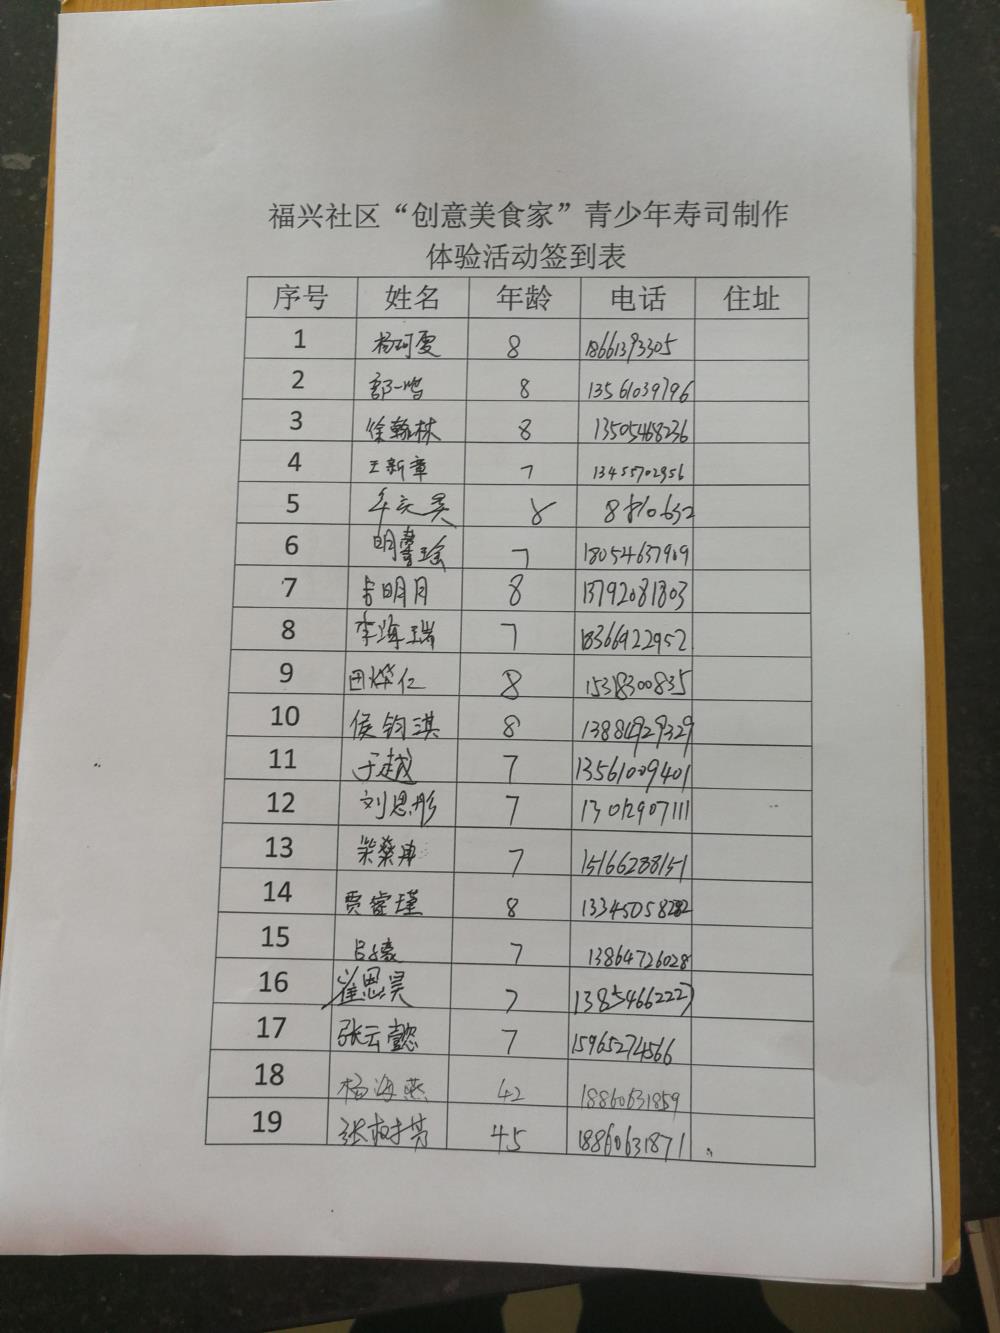 福兴社区“创意美食家”青少年寿司制作
体验活动签到表
序号 姓名 年龄 电话 住址
1 杨珂雯 8 18661393305
2 郭一鸣 8 13561039796
3 徐翰林 8 13505468236
4 王新章 7 13455702956
5 8
6 明馨瑶 7 18054637909
7 明月 8 13792081303
8 李海瑞 7 18366922952
9 田烨仁 8 15318300835
10 侯钧淇 8
11 于越 7 13561009401
12 刘思彤 7 13012907111
13 7 15166288151
14 贾睿瑾 8
15 吕豪 7 13864726028
16 崔思昊 7 13854662227
17 张云懿 7 15965274566
18 杨海燕 42 18860631859
19 张树芳 45 18860631871